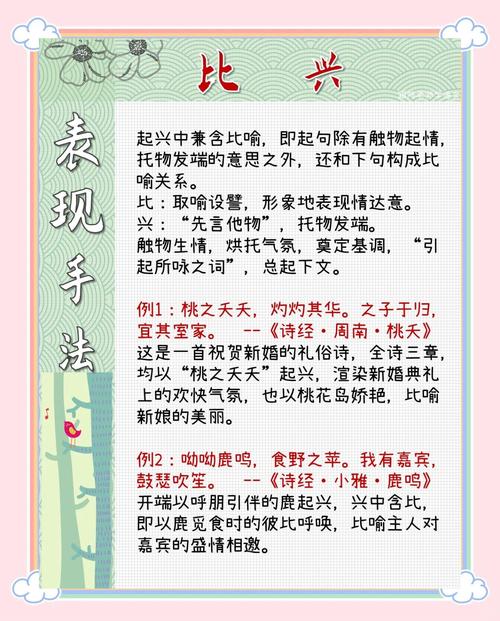 比兴
表现手法
起兴中兼含比喻，即起句除有触物起情，
托物发端的意思之外，还和下句构成比
喻关系。
比：取喻设譬，形象地表现情达意。
兴：“先言他物”，托物发端。
触物生情，烘托气氛，奠定基调，“引
起所咏之词”，总起下文。
例1：桃之夭夭，灼灼其华。之子于归，
宜其室家。 --《诗经·周南·桃夭》
这是一首祝贺新婚的礼俗诗，全诗三章，
均以“桃之夭夭”起兴，渲染新婚典礼
上的欢快气氛，也以桃花岛娇艳，比喻
新娘的美丽。
例2：呦呦鹿鸣，食野之苹。我有嘉宾，
鼓瑟吹笙。 --《诗经·小雅·鹿鸣》
开端以呼朋引伴的鹿起兴，兴中含比，
即以鹿觅食时的彼比呼唤，比喻主人对
嘉宾的盛情相邀。